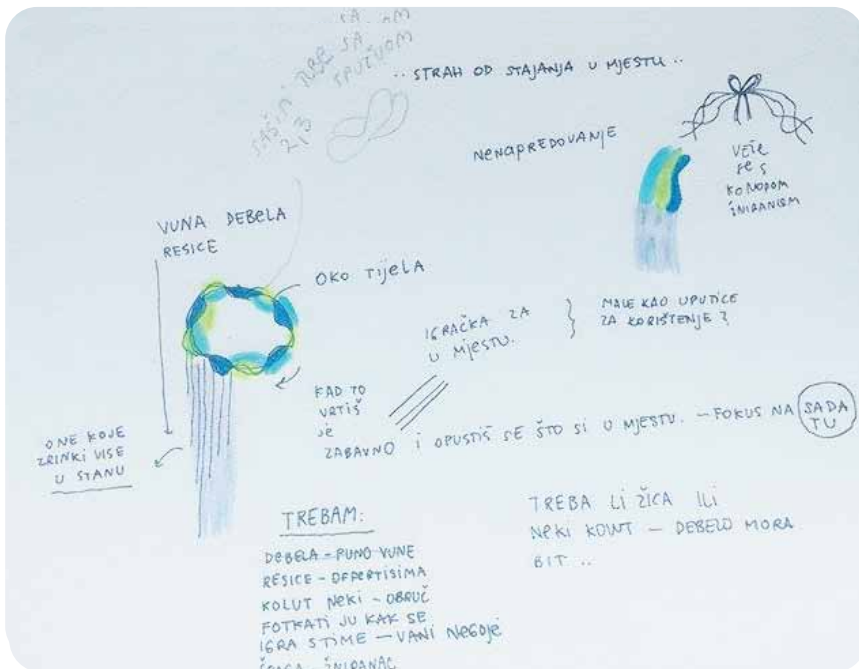 SAŠIN TUBE SA
SPUŽVOM
2,3
.. STRAH OD STAJANJA U MJESTU ..
NENAPREDOVANJE
VEŽE
SE S
KONOPOM
ŠNIRANJSM
VUNA DEBELA
RESICE
OKO TIJELA
IGRAČKA ZA
U MJESTU.
MALE KAO UPUTICE
ZA KORIŠTENJE?
KAD TO
VRTIŠ
JE
ZABAVNO I OPUSTIŠ SE ŠTO SI U MJESTU. – FOKUS NA SADA
TU
ONE KOJE
ZRINKI VISE
U STANU
TREBAM:
DEBELA – PUNO VUNE
RESICE – DEPERTISIMA
KOLUT NEKI – OBRUČ
FOTKATI JU KAK SE
IGRA S TIME – VANI NEGDJE
ŠPAGA – ŠNIRANAC
TREBA LI ŽICA ILI
NEKI KOLUT – DEBELO MORA
BIT ..